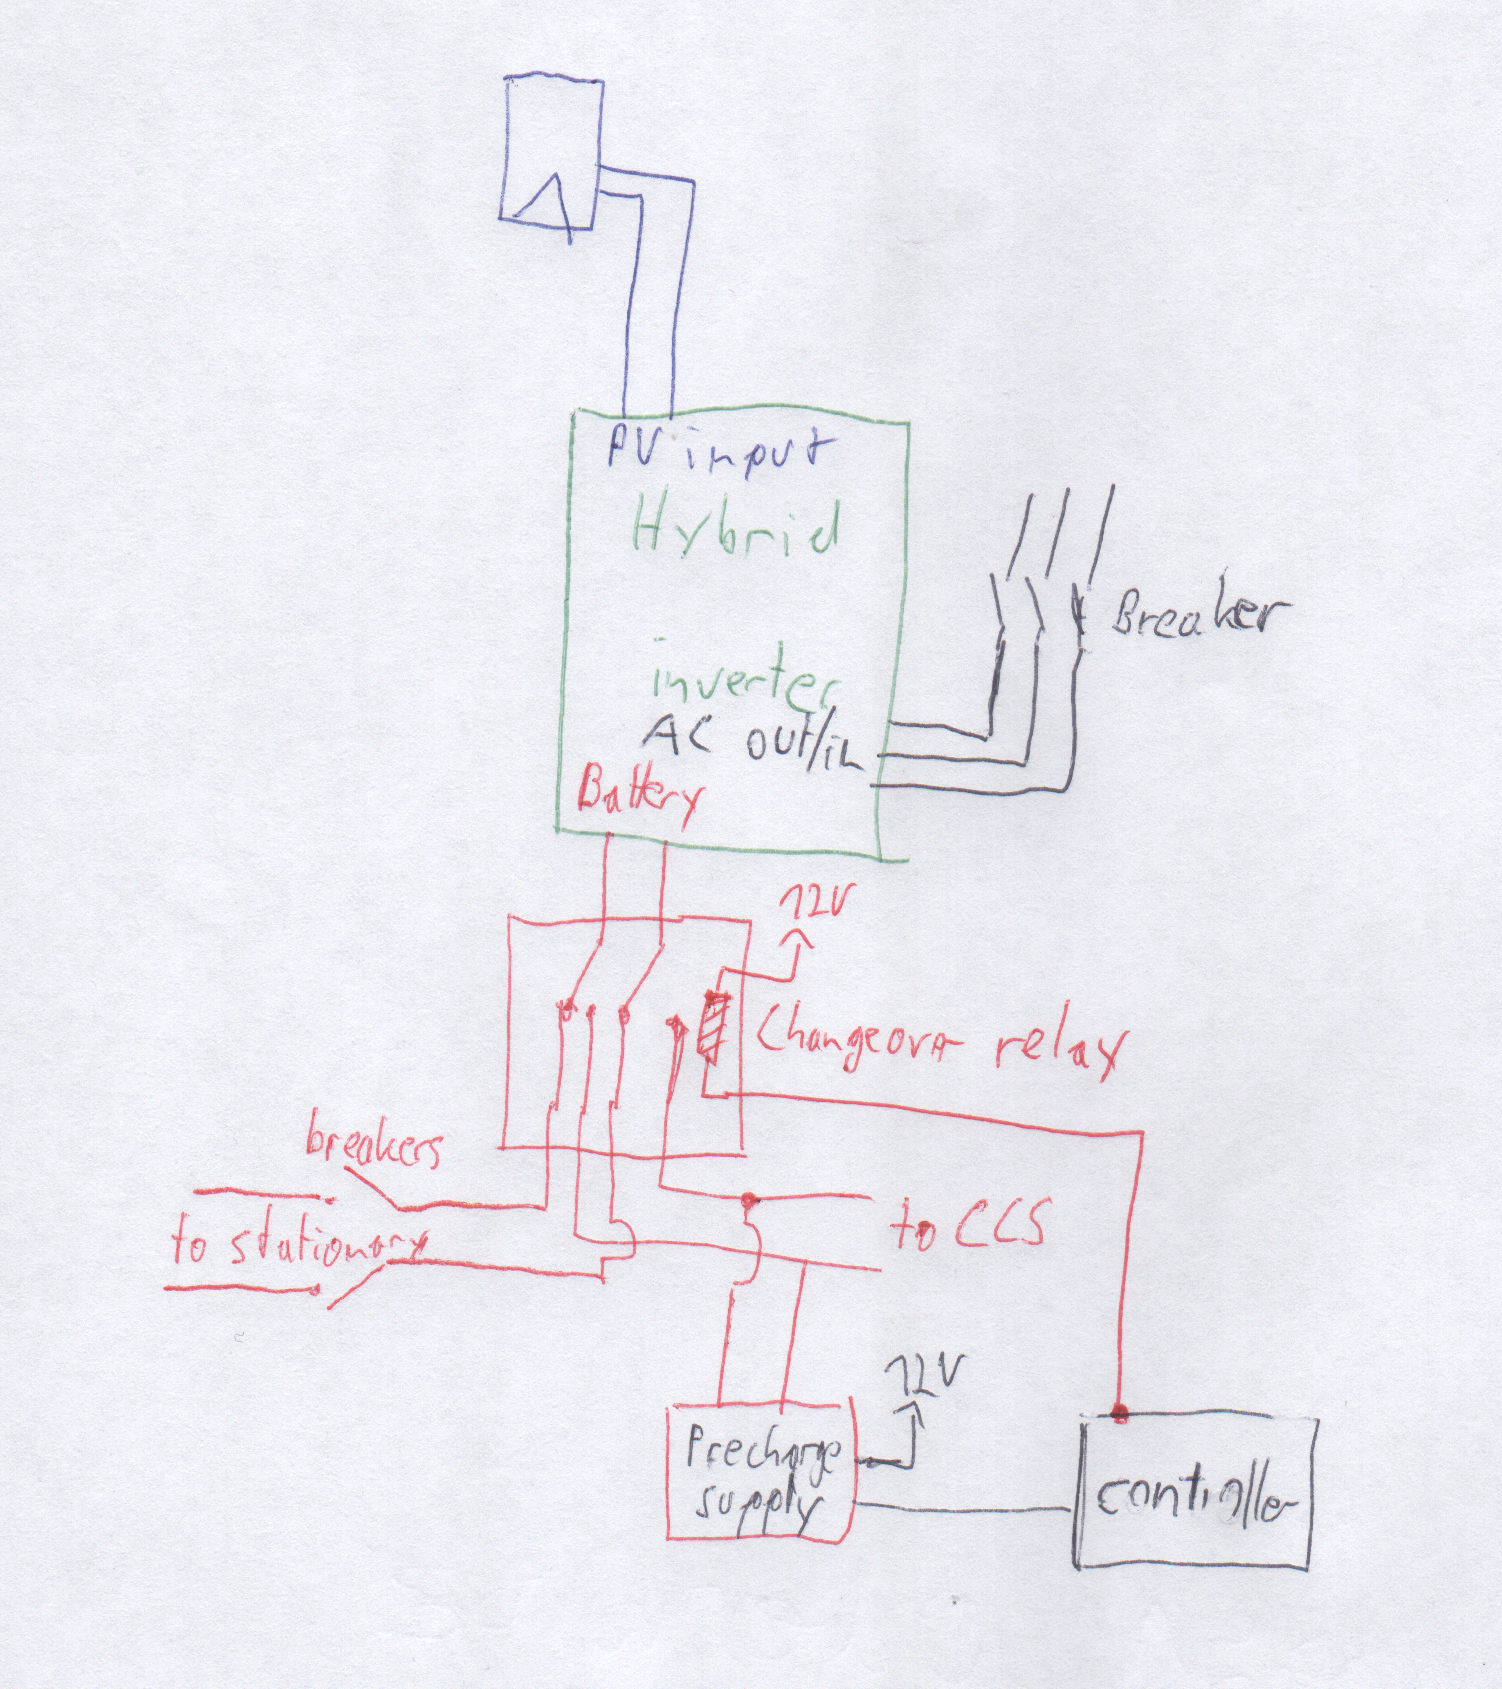 PV input
Hybrid
inverter
AC out/in
Breaker
Battery
12V
Changeovr relay
breakers
to stationary
to CCS
12V
Precharge
supply
controller